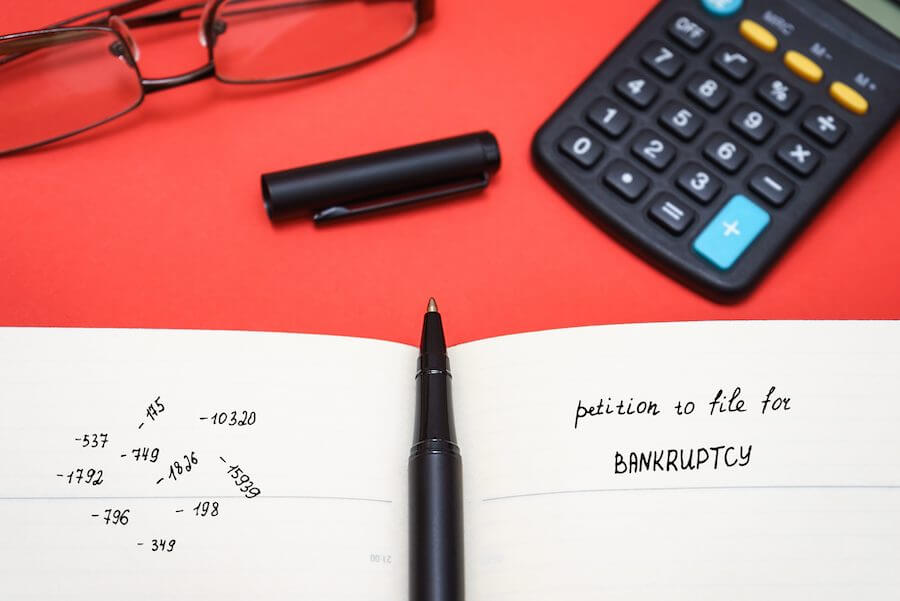 OFF
MRC
M-
M+
7
8
9
4
5
6
1
2
3
0
√
%
÷
×
−
•
=
+
- 175
-10320
-537
- 749
- 1826
- 15939
- 1792
- 796
- 198
- 349
21:00
petition to file for
BANKRUPTCY